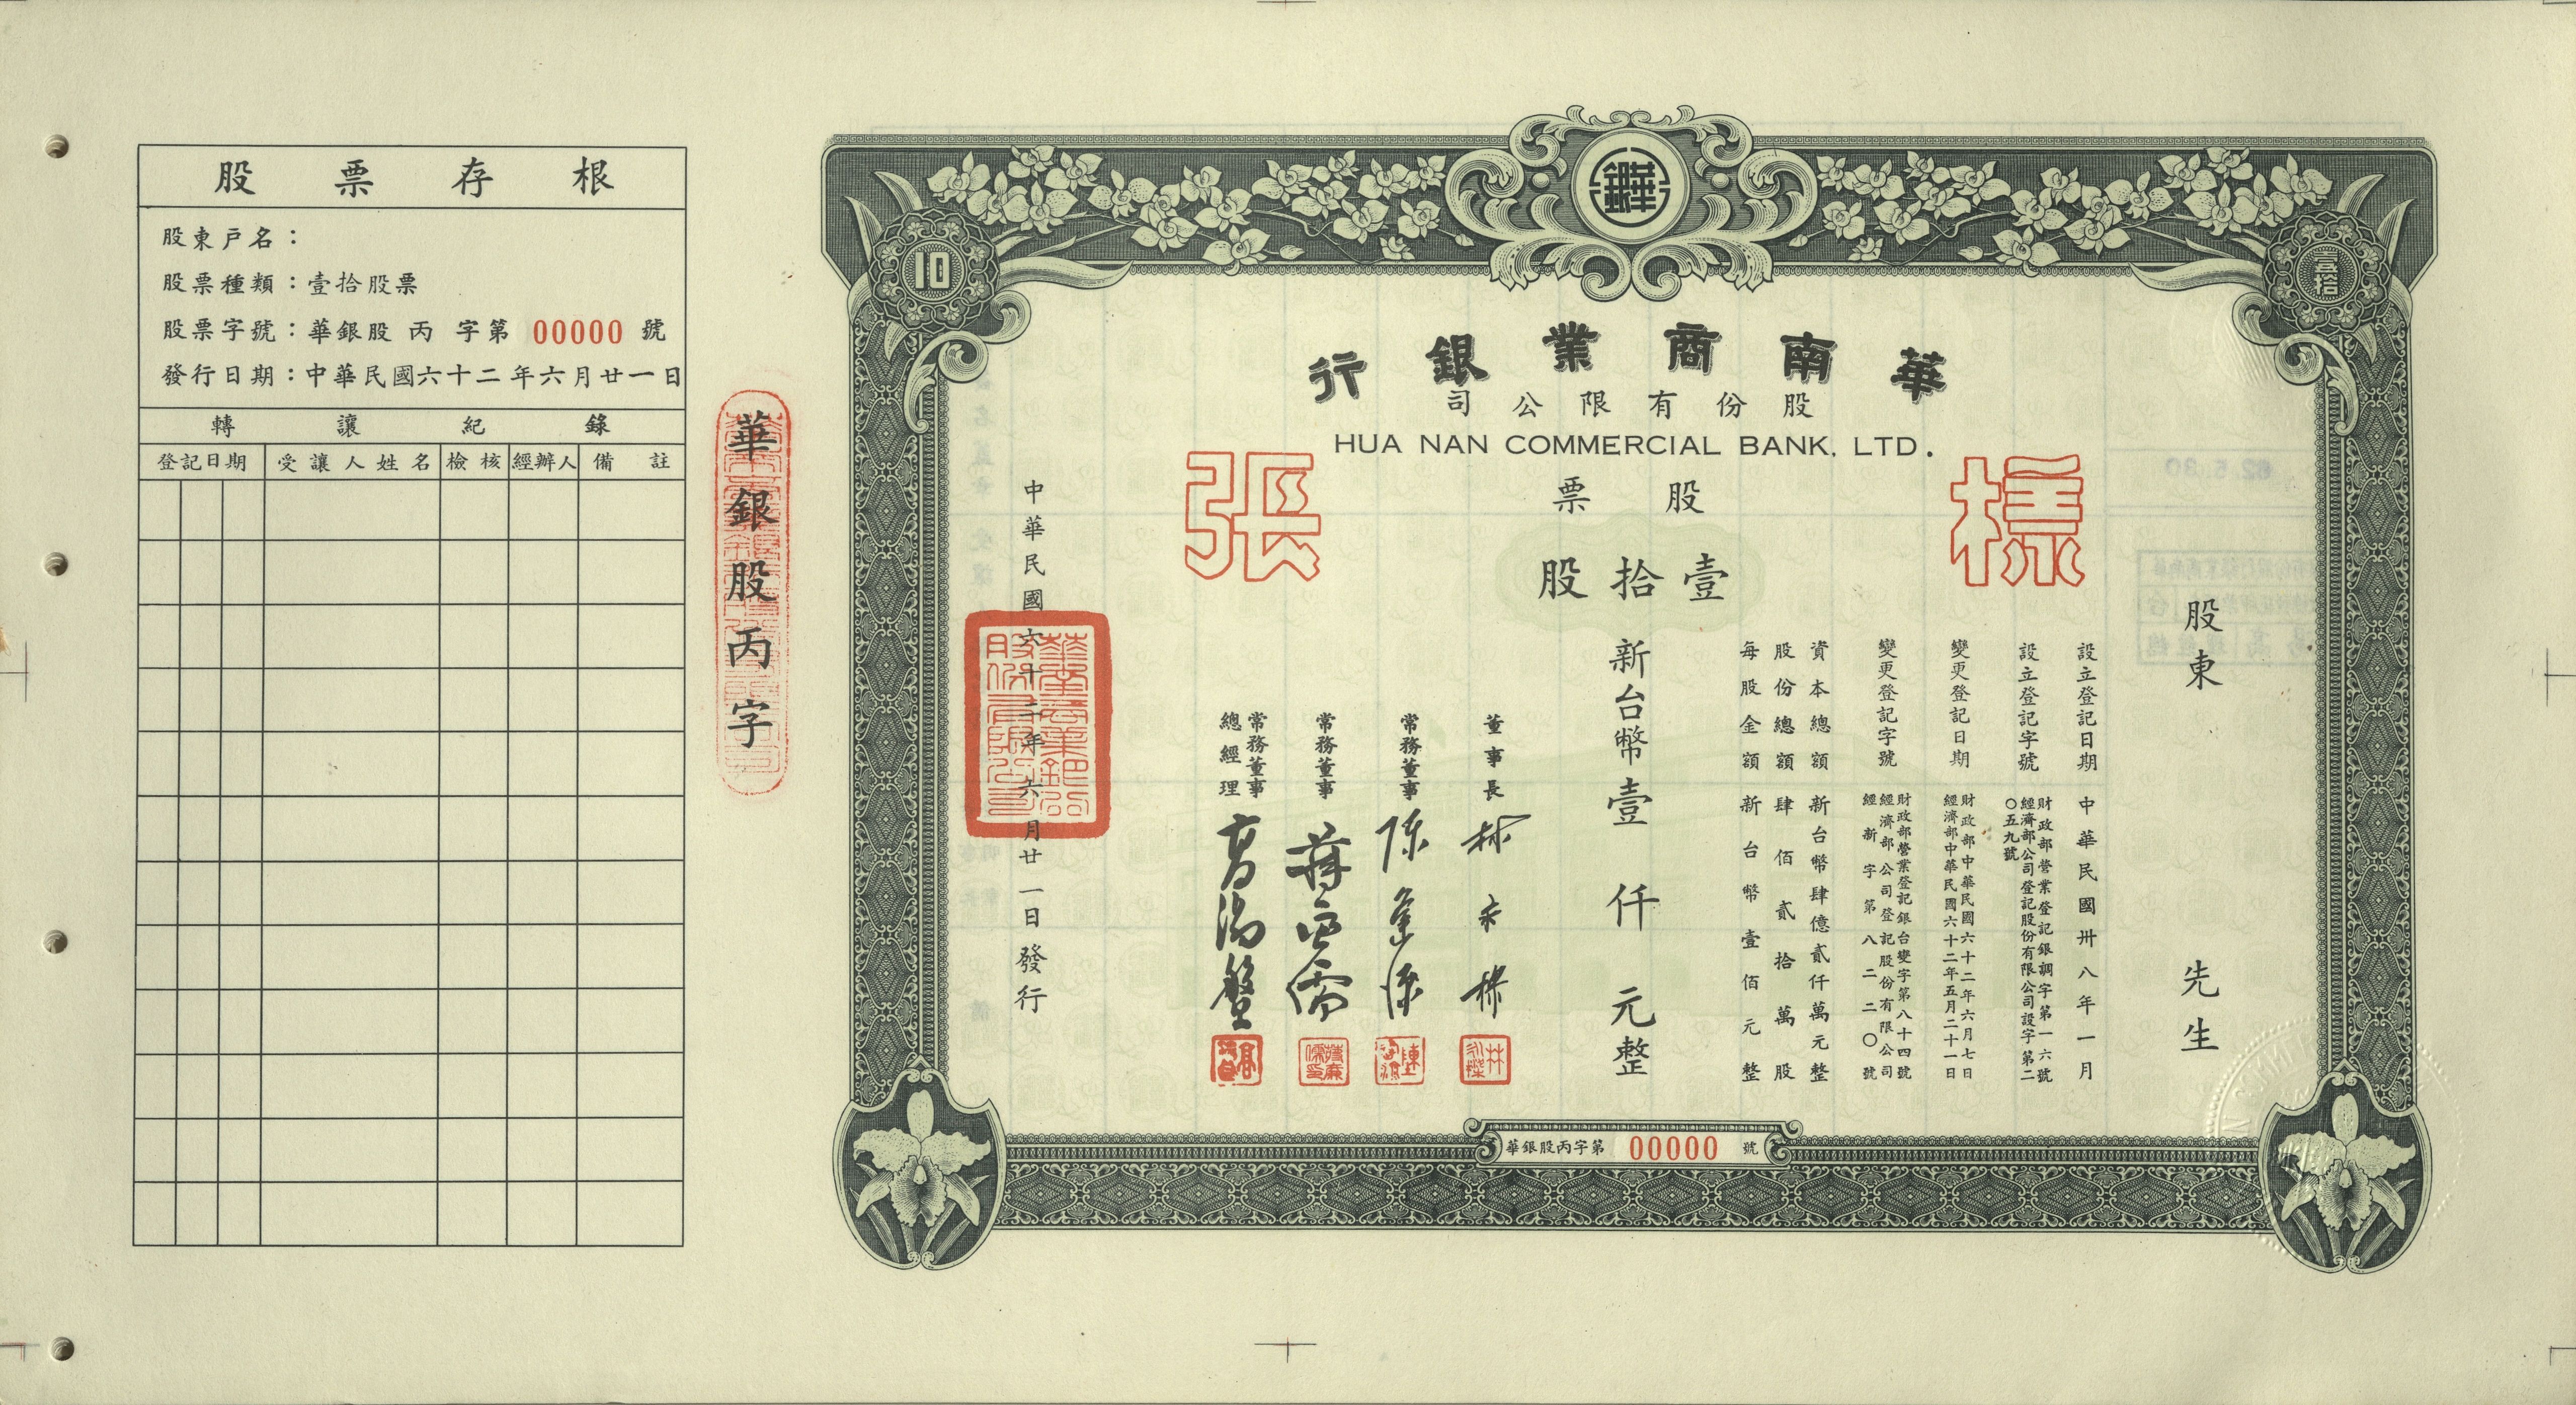 股票存根
股東戶名：
股票種類：壹拾股票
股票字號：華銀股 丙 字第 00000 號
發行日期：中華民國六十二年六月廿一日
轉讓紀錄
登記日期 受讓人姓名 檢核 經辦人 備註
華銀股丙字
10
壹拾
華銀
華南商業銀行
股份有限公司
HUA NAN COMMERCIAL BANK, LTD.
樣張
股票
壹拾股
股東 先生
設立登記日期 中華民國卅八年一月
設立登記字號 財政部營業登記銀調字第一六號
經濟部公司登記股份有限公司設字第二〇五九號
變更登記日期 財政部中華民國六十二年六月七日
經濟部中華民國六十二年五月二十一日
變更登記字號 財政部營業登記銀台變字第八十四號
經濟部公司登記股份有限公司
經新字第八二二〇號
資本總額 新台幣肆億貳仟萬元整
股份總額 肆佰貳拾萬股
每股金額 新台幣壹佰元整
新台幣壹仟元整
董事長
常務董事
常務董事
常務董事
總經理
中華民國六十二年六月廿一日發行
華南商業銀行股份有限公司
華銀股丙字第 00000 號